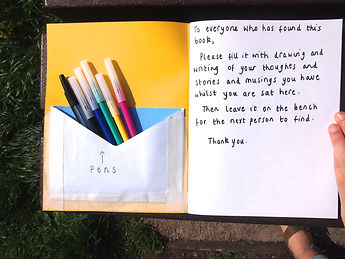 To everyone who has found this
book,
Please fill it with drawing and
writing of your thoughts and
stories and musings you have
whilst you are sat here.
Then leave it on the bench
for the next person to find.
Thank you.
↑
Pens